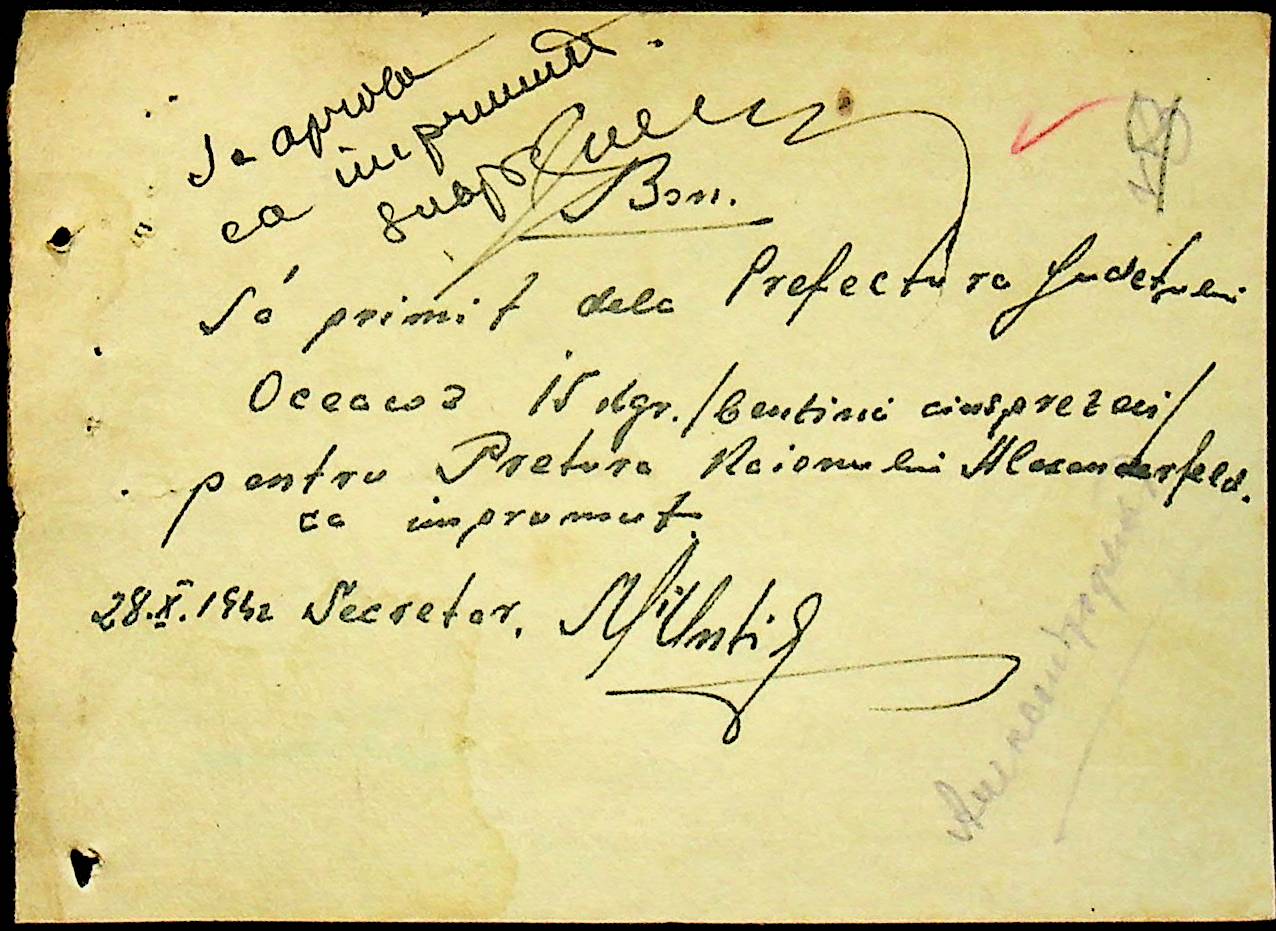 Se aproba
ca imprumut.
Bon.
S'a primit dela Prefectura Judetului
Oceacov 15 kgr. / benzina cinsprezeci /
pentru Pretura Raionului Alexanderfeld.
ca imprumut.
28.X.1942 Secretar,